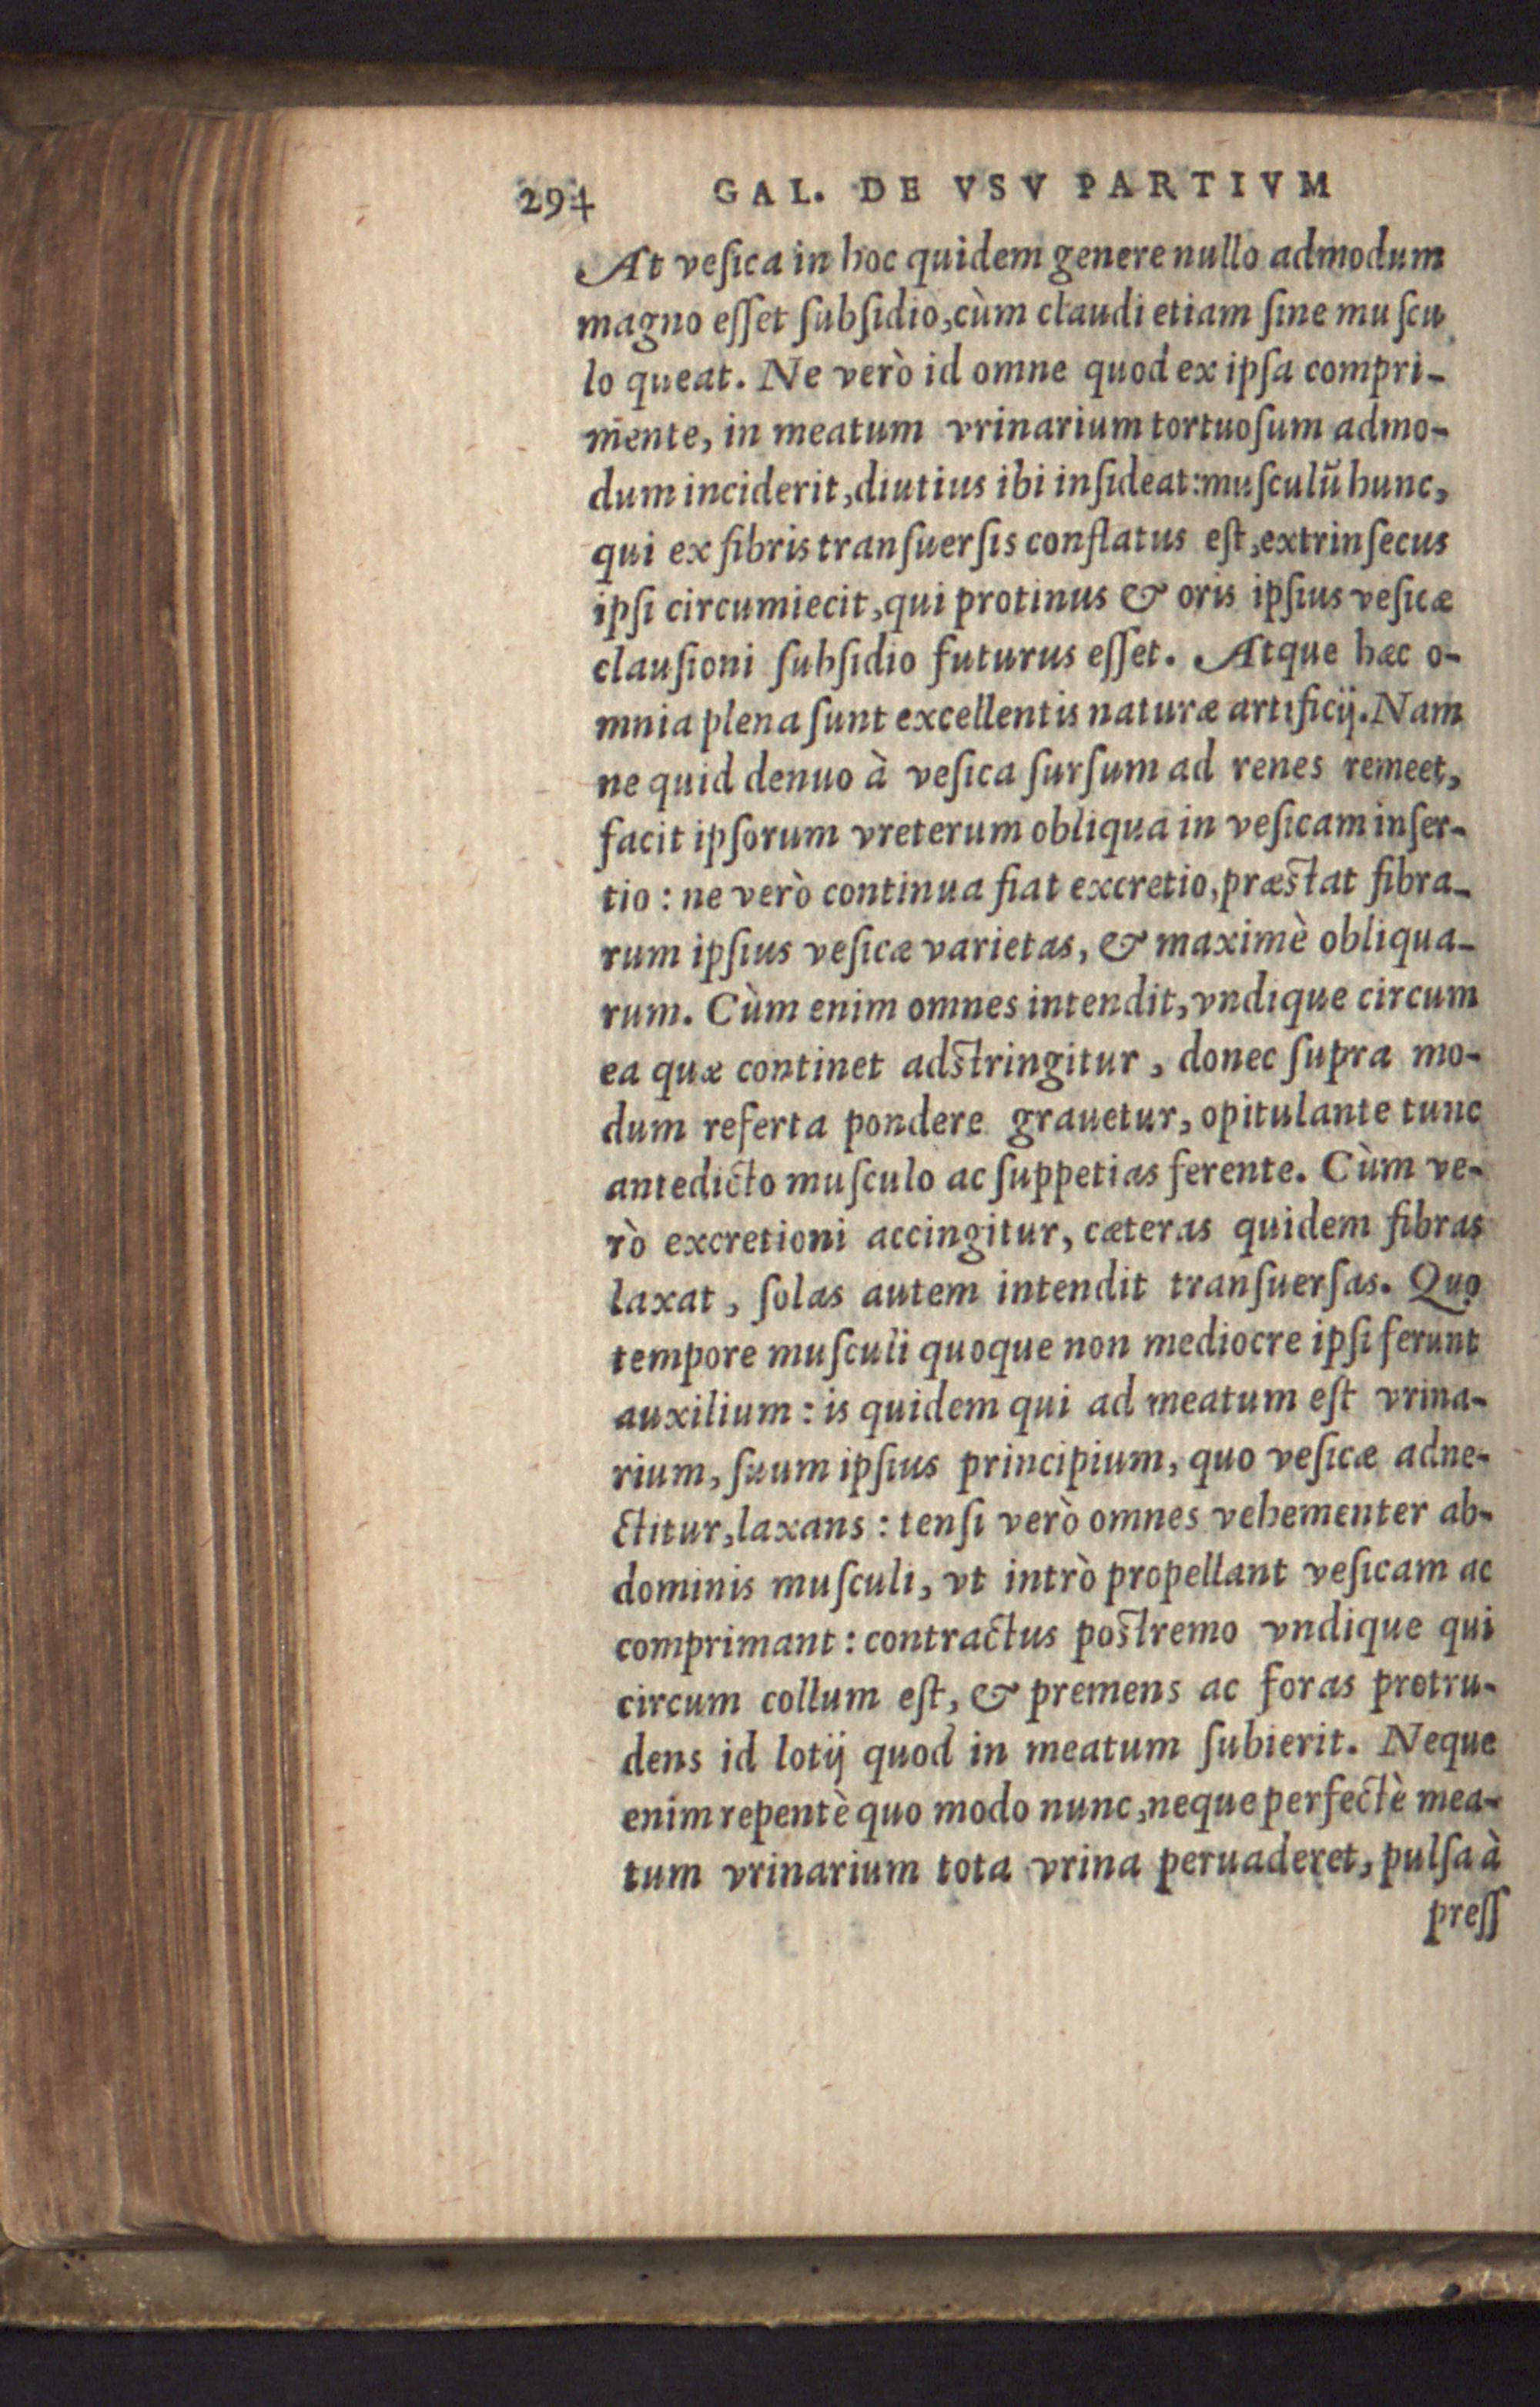 294 GAL. DE VSV PARTIVM
At veſica in hoc quidem genere nullo admodum
magno eſſet ſubſidio, cùm claudi etiam ſine muſcu
lo queat. Ne verò id omne quod ex ipſa compri-
mente, in meatum vrinarium tortuoſum admo-
dum inciderit, diutius ibi inſideat: muſculũ hunc,
qui ex fibris tranſuerſis conflatus eſt, extrinſecus
ipſi circumiecit, qui protinus & oris ipſius veſicæ
clauſioni ſubſidio futurus eſſet. Atque hæc o-
mnia plena ſunt excellentis naturæ artificij. Nam
ne quid denuo à veſica ſurſum ad renes remeet,
facit ipſorum vreterum obliqua in veſicam inſer-
tio: ne verò continua fiat excretio, præſtat fibra-
rum ipſius veſicæ varietas, & maximè obliqua-
rum. Cùm enim omnes intendit, vndique circum
ea quæ continet adſtringitur, donec ſupra mo-
dum referta pondere grauetur, opitulante tunc
antedicto muſculo ac ſuppetias ferente. Cùm ve-
rò excretioni accingitur, cæteras quidem fibras
laxat, ſolas autem intendit tranſuerſas. Quo
tempore muſculi quoque non mediocre ipſi ferunt
auxilium: is quidem qui ad meatum eſt vrina-
rium, ſuum ipſius principium, quo veſicæ adne-
ctitur, laxans: tenſi verò omnes vehementer ab-
dominis muſculi, vt intrò propellant veſicam ac
comprimant: contractus poſtremo vndique qui
circum collum eſt, & premens ac foras protru-
dens id lotij quod in meatum ſubierit. Neque
enim repentè quo modo nunc, neque perfectè mea-
tum vrinarium tota vrina peruaderet, pulſa à
preſſ